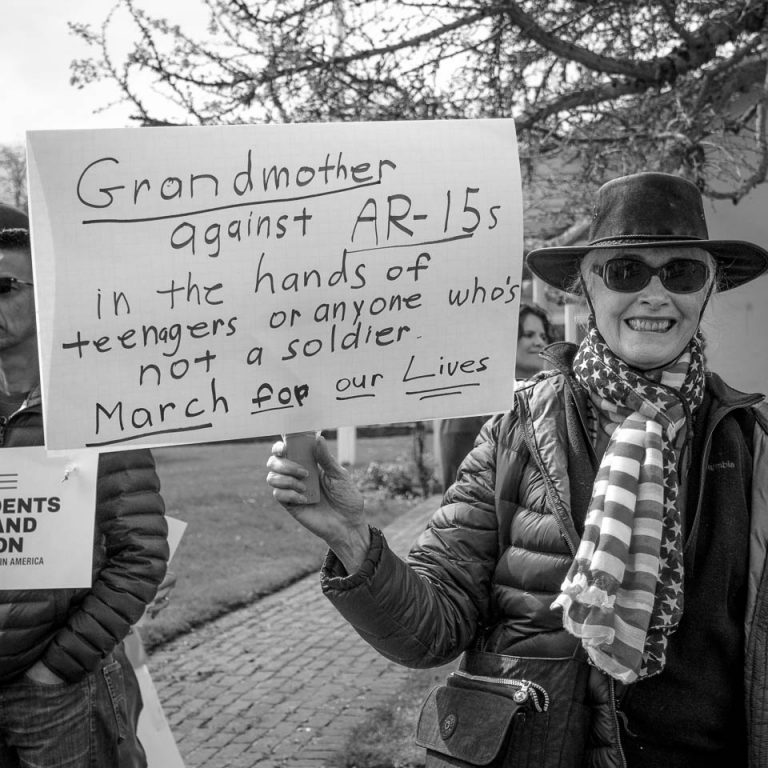 Grandmother
against AR-15s
in the hands of
teenagers or anyone who's
not a soldier.
March for our Lives
DENTS
AND
ON
IN AMERICA
Columbia